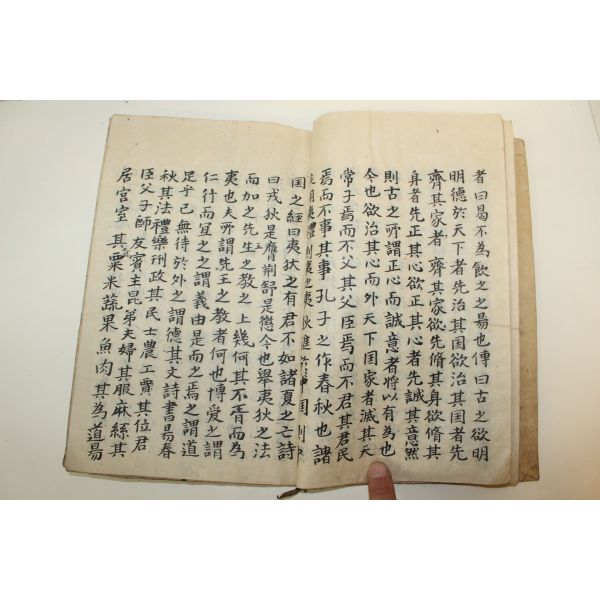 者曰曷不為飲之之易也傳曰古之欲明
明德於天下者先治其国欲治其国者先
齊其家者齊其家欲先脩其身欲脩其
身者先正其心欲正其心者先誠其意然
則古之所謂正心而誠意者將以有為也
今也欲治其心而外天下国家者滅其天
常子焉而不父其父臣焉而不君其君民
焉而不事其事孔子之作春秋也諸
用夷禮則夷之夷狄進国則
国之經曰夷狄之有君不如諸夏之亡詩
曰戎狄是膺荊舒是懲今也舉夷狄之法
而加之先生之教之上幾何其不胥而為
王
夷也夫所謂先王之教者何也博愛之謂
仁行而宜之之謂義由是而之焉之謂道
足乎己無待於外之謂德其文詩書易春
秋其法禮樂刑政其民士農工賈其位君
臣父子師友賓主昆弟夫婦其服麻絲其
居宮室其粟米蔬果魚肉其為道易